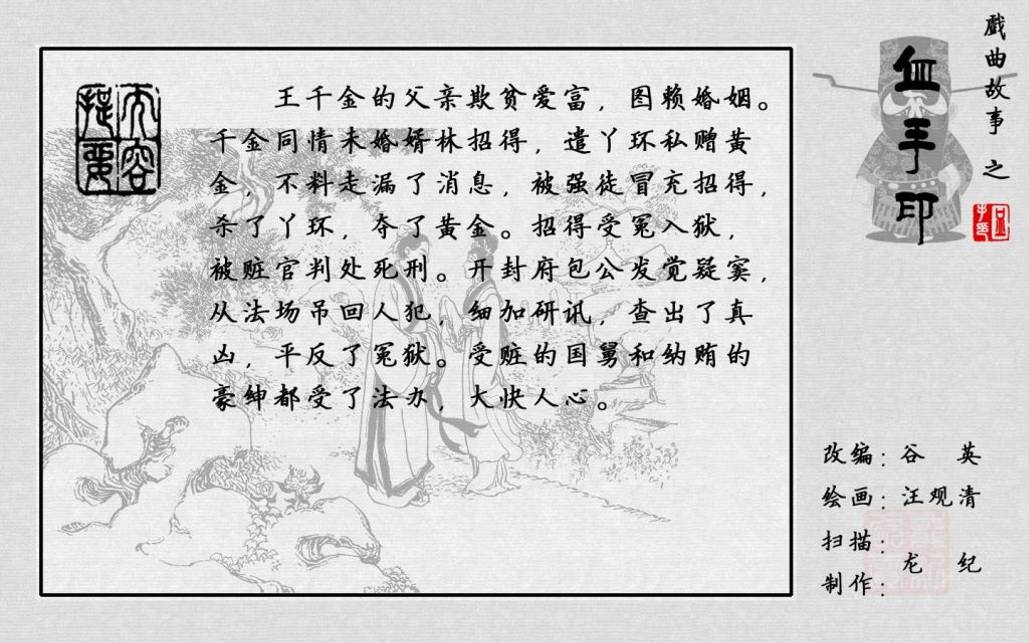 内容提要
王千金的父亲欺贫爱富，图赖婚姻。
千金同情未婚婿林招得，遣丫环私赠黄
金，不料走漏了消息，被强徒冒充招得，
杀了丫环，夺了黄金。招得受冤入狱，
被赃官判处死刑。开封府包公发觉疑窦，
从法场吊回人犯，细加研讯，查出了真
凶，平反了冤狱。受赃的国舅和纳贿的
豪绅都受了法办，大快人心。
戲曲故事之
血手印
改编：谷 英
绘画：汪观清
扫描：
制作：龙 纪